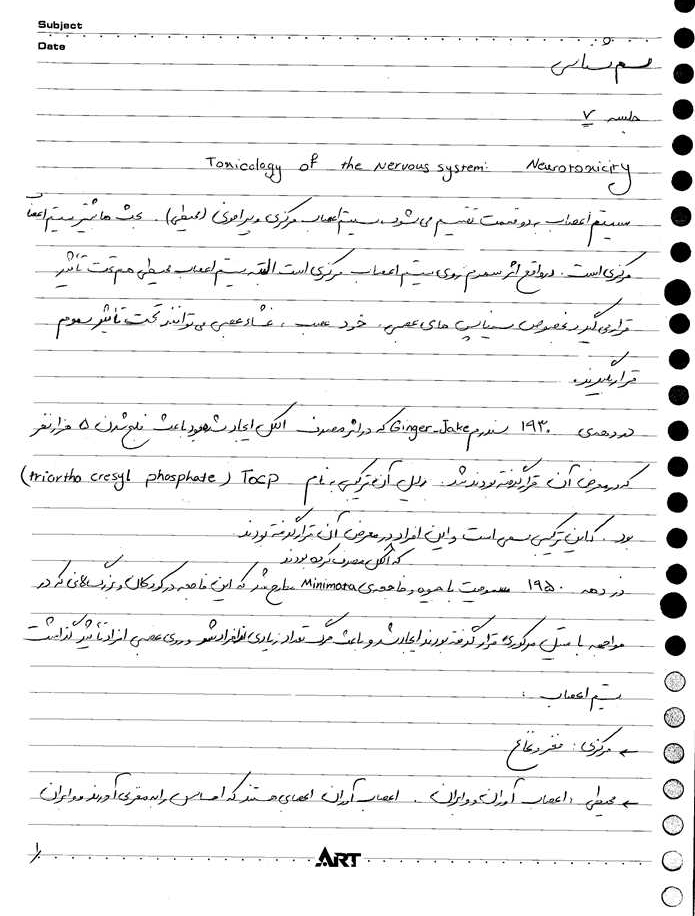 Subject
Date
سم شناسی
جلسه ۷
Toxicology of the nervous system: Neurotoxicity
سیستم اعصاب به دو قسمت تقسیم می‌شود، سیستم اعصاب مرکزی و پیرامونی (محیطی). بحث ما بیشتر سیستم اعصاب
مرکزی است. در واقع اثر سموم روی سیستم اعصاب مرکزی است البته سیستم اعصاب محیطی هم تحت تأثیر
قرار می‌گیرد بخصوص سیناپس های عصبی، خود عصب، غشاء عصبی می‌توانند تحت تأثیر سموم
قرار بگیرند.
در دهه‌ی ۱۹۳۰ سندرم Ginger-Jake که در اثر مصرف الکل ایجاد شده بود باعث فلج شدن ۵ هزار نفر
که در معرض آن قرار گرفته بودند شد. دلیل آن ترکیبی به نام TOCP (triortho cresyl phosphate)
بود. که این ترکیب سمی است و این افراد در معرض آن قرار گرفته بودند
که الکل مصرف کرده بودند
در دهه ۱۹۵۰ مسمومیت با جیوه و فاجعه‌ی Minimata مطرح شد که این فاجعه در کودکان و بزرگسالانی که در
مواجهه با متیل مرکوری قرار گرفته بودند ایجاد شد و باعث مرگ تعداد زیادی از افراد شد و روی عصبی افراد تأثیر گذاشت
سیستم اعصاب :
← مرکزی : مغز و نخاع
← محیطی : اعصاب آوران و وابران . اعصاب آوران اعصابی هستند که احساس را به مغز می آورند و وابران
۱
ART